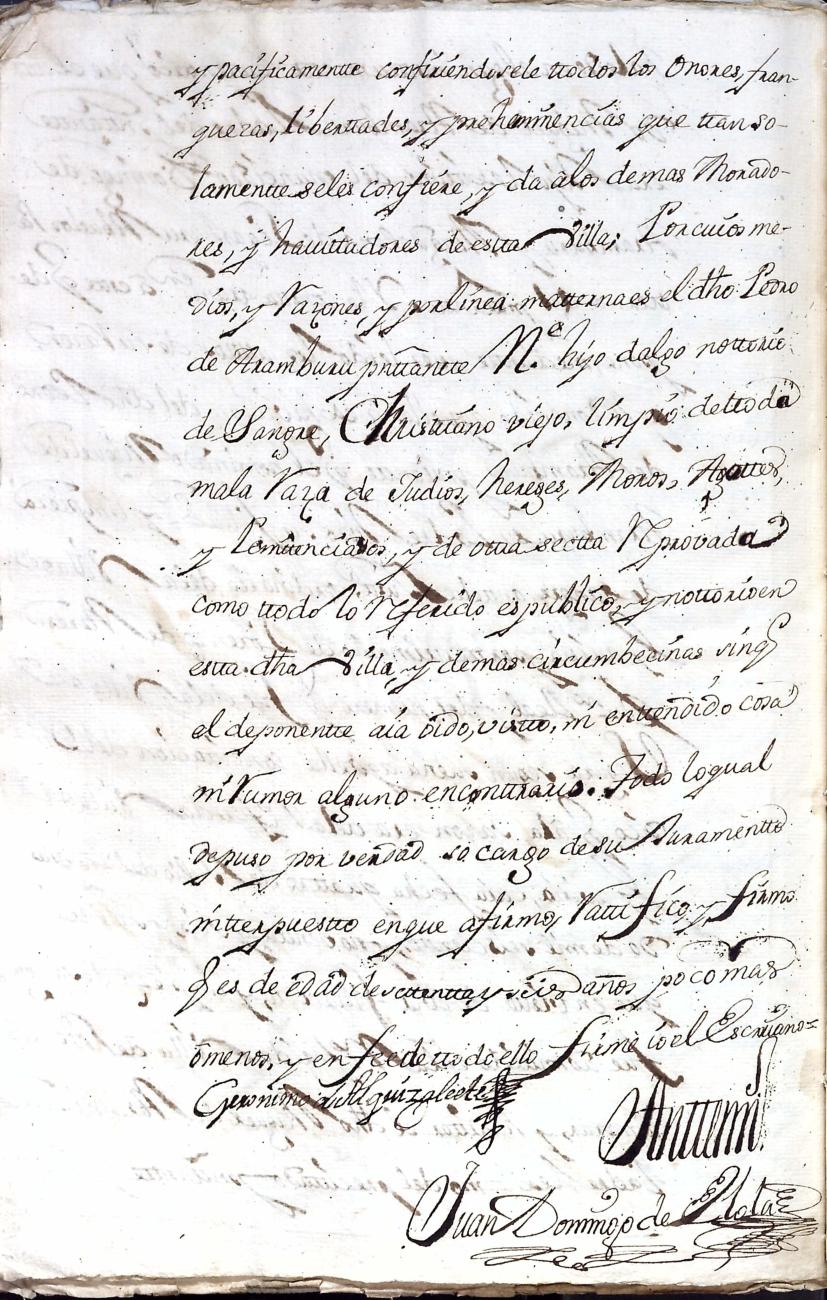 y pacificamentte confiriendosele ttodos los Onores, fran-
quezas, liberttades, y prehemınencias que ttan so-
lamentte seles confiere, y da alos demas Morado-
res, y havittadores de estta Villa; Por cuios me-
dios, y Razones, y por linea matterna es el dho Pedro
de Aramburu pnttantte N.ᵉ hijo dalgo nottorio
de Sangre, Christtiano viejo, limpio de ttoda
mala Raza de Judios, hereges, Moros, Agottes,
y Penittenciados, y de otta sectta Reprovada
como ttodo lo Referido es publico, y nottorio en
estta dha Villa, y demas circumbecinas sinq̃
el deponentte aia oido, vistto, ni enttendido cosa
ni Rumor alguno enconttrario. Todo loqual
depuso por verdad so cargo de su Juramentto
intterpuestto enque afirmo, Rattifico, y firmo
q̃ es de edad de settentta y seis años poco mas
omenos, y en fee de ttodo ello firme io el Escrivano=
Geronimo de Alquizalette
Anttemi
Juan Domingo de